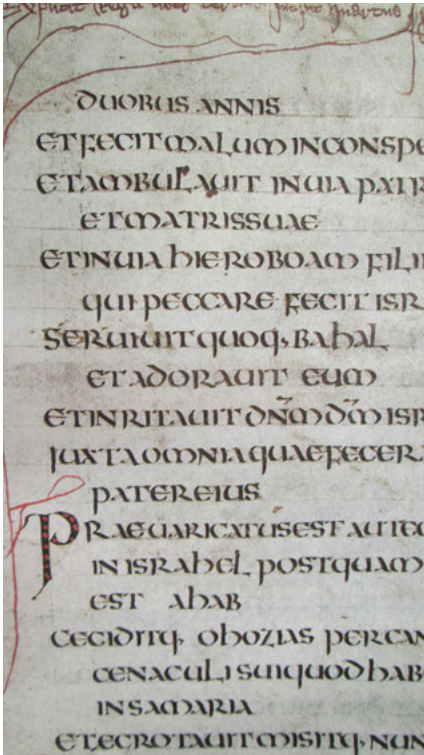 Explicit incipit quartus
DUOBUS ANNIS
ET FECIT MALUM IN CONSPE
ET AMBULAUIT IN UIA PATR
ET MATRIS SUAE
ET IN UIA HIEROBOAM FILI
QUI PECCARE FECIT ISR
SERUIUIT QUOQ· BAHAL
ET ADORAUIT EUM
ET INRITAUIT DN̄M DM̄ ISR
IUXTA OMNIA QUAE FECER
PATER EIUS
PRAEUARICATUS EST AUTE
IN ISRAHEL POSTQUAM
EST AHAB
CECIDITQ· OHOZIAS PER CAN
CENACULI SUI QUOD HAB
IN SAMARIA
ET EGROTAUIT MISITQ· NUN